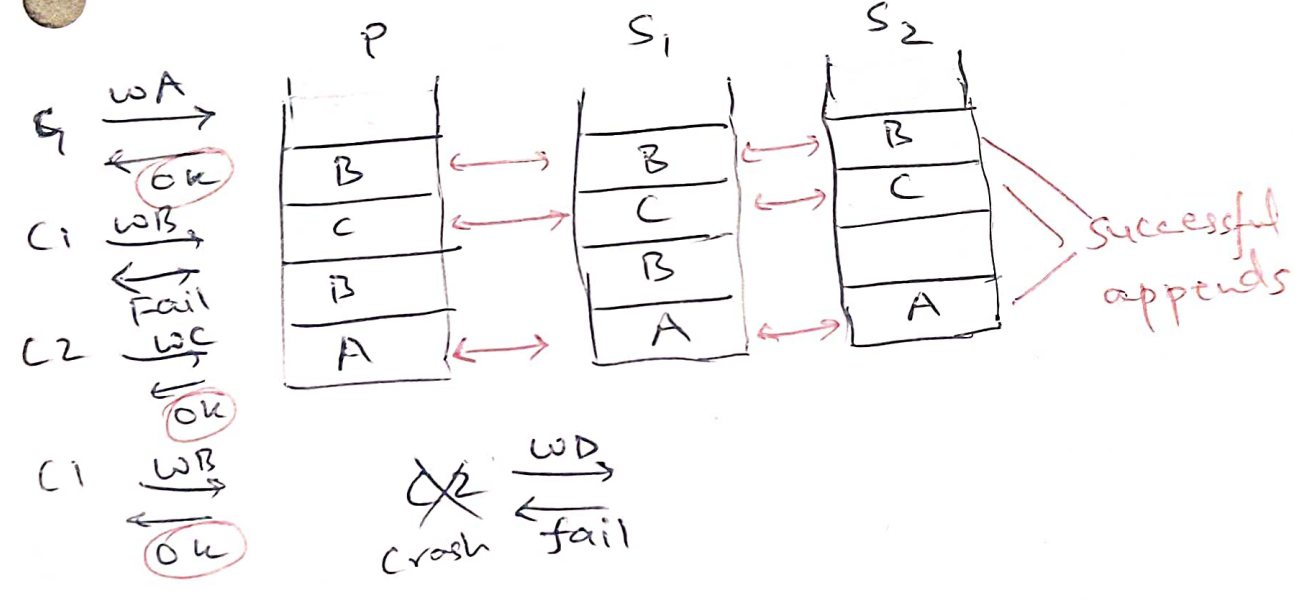 P S1 S2
C1 wA
OK
C1 wB
Fail
C2 wC
OK
C1 wB
OK
B B B
C C C
B B
A A A
successful
appends
C2 wD
crash fail